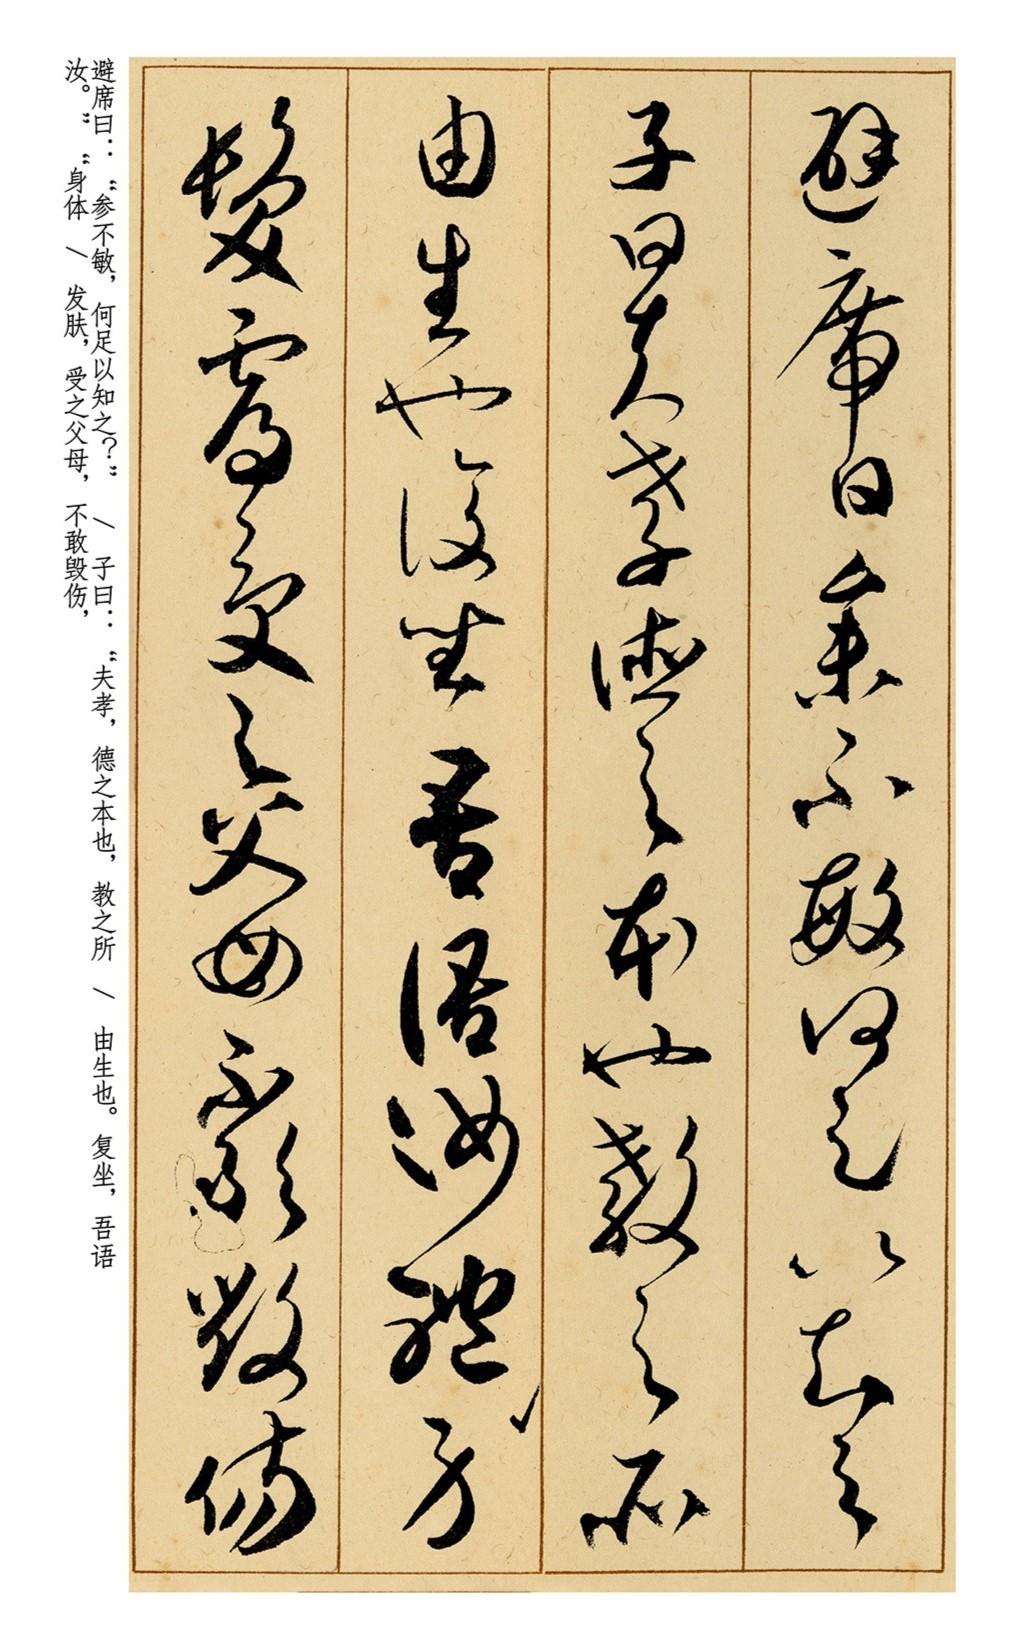 避席曰參不敏何足以知之
子曰夫孝德之本也教之所
由生也復坐吾語汝體身
髮膚受之父母不敢毀傷
避席曰：“参不敏，何足以知之？” / 子曰：“夫孝，德之本也，教之所 / 由生也。复坐，吾语
汝。”“身体 / 发肤，受之父母，不敢毁伤，